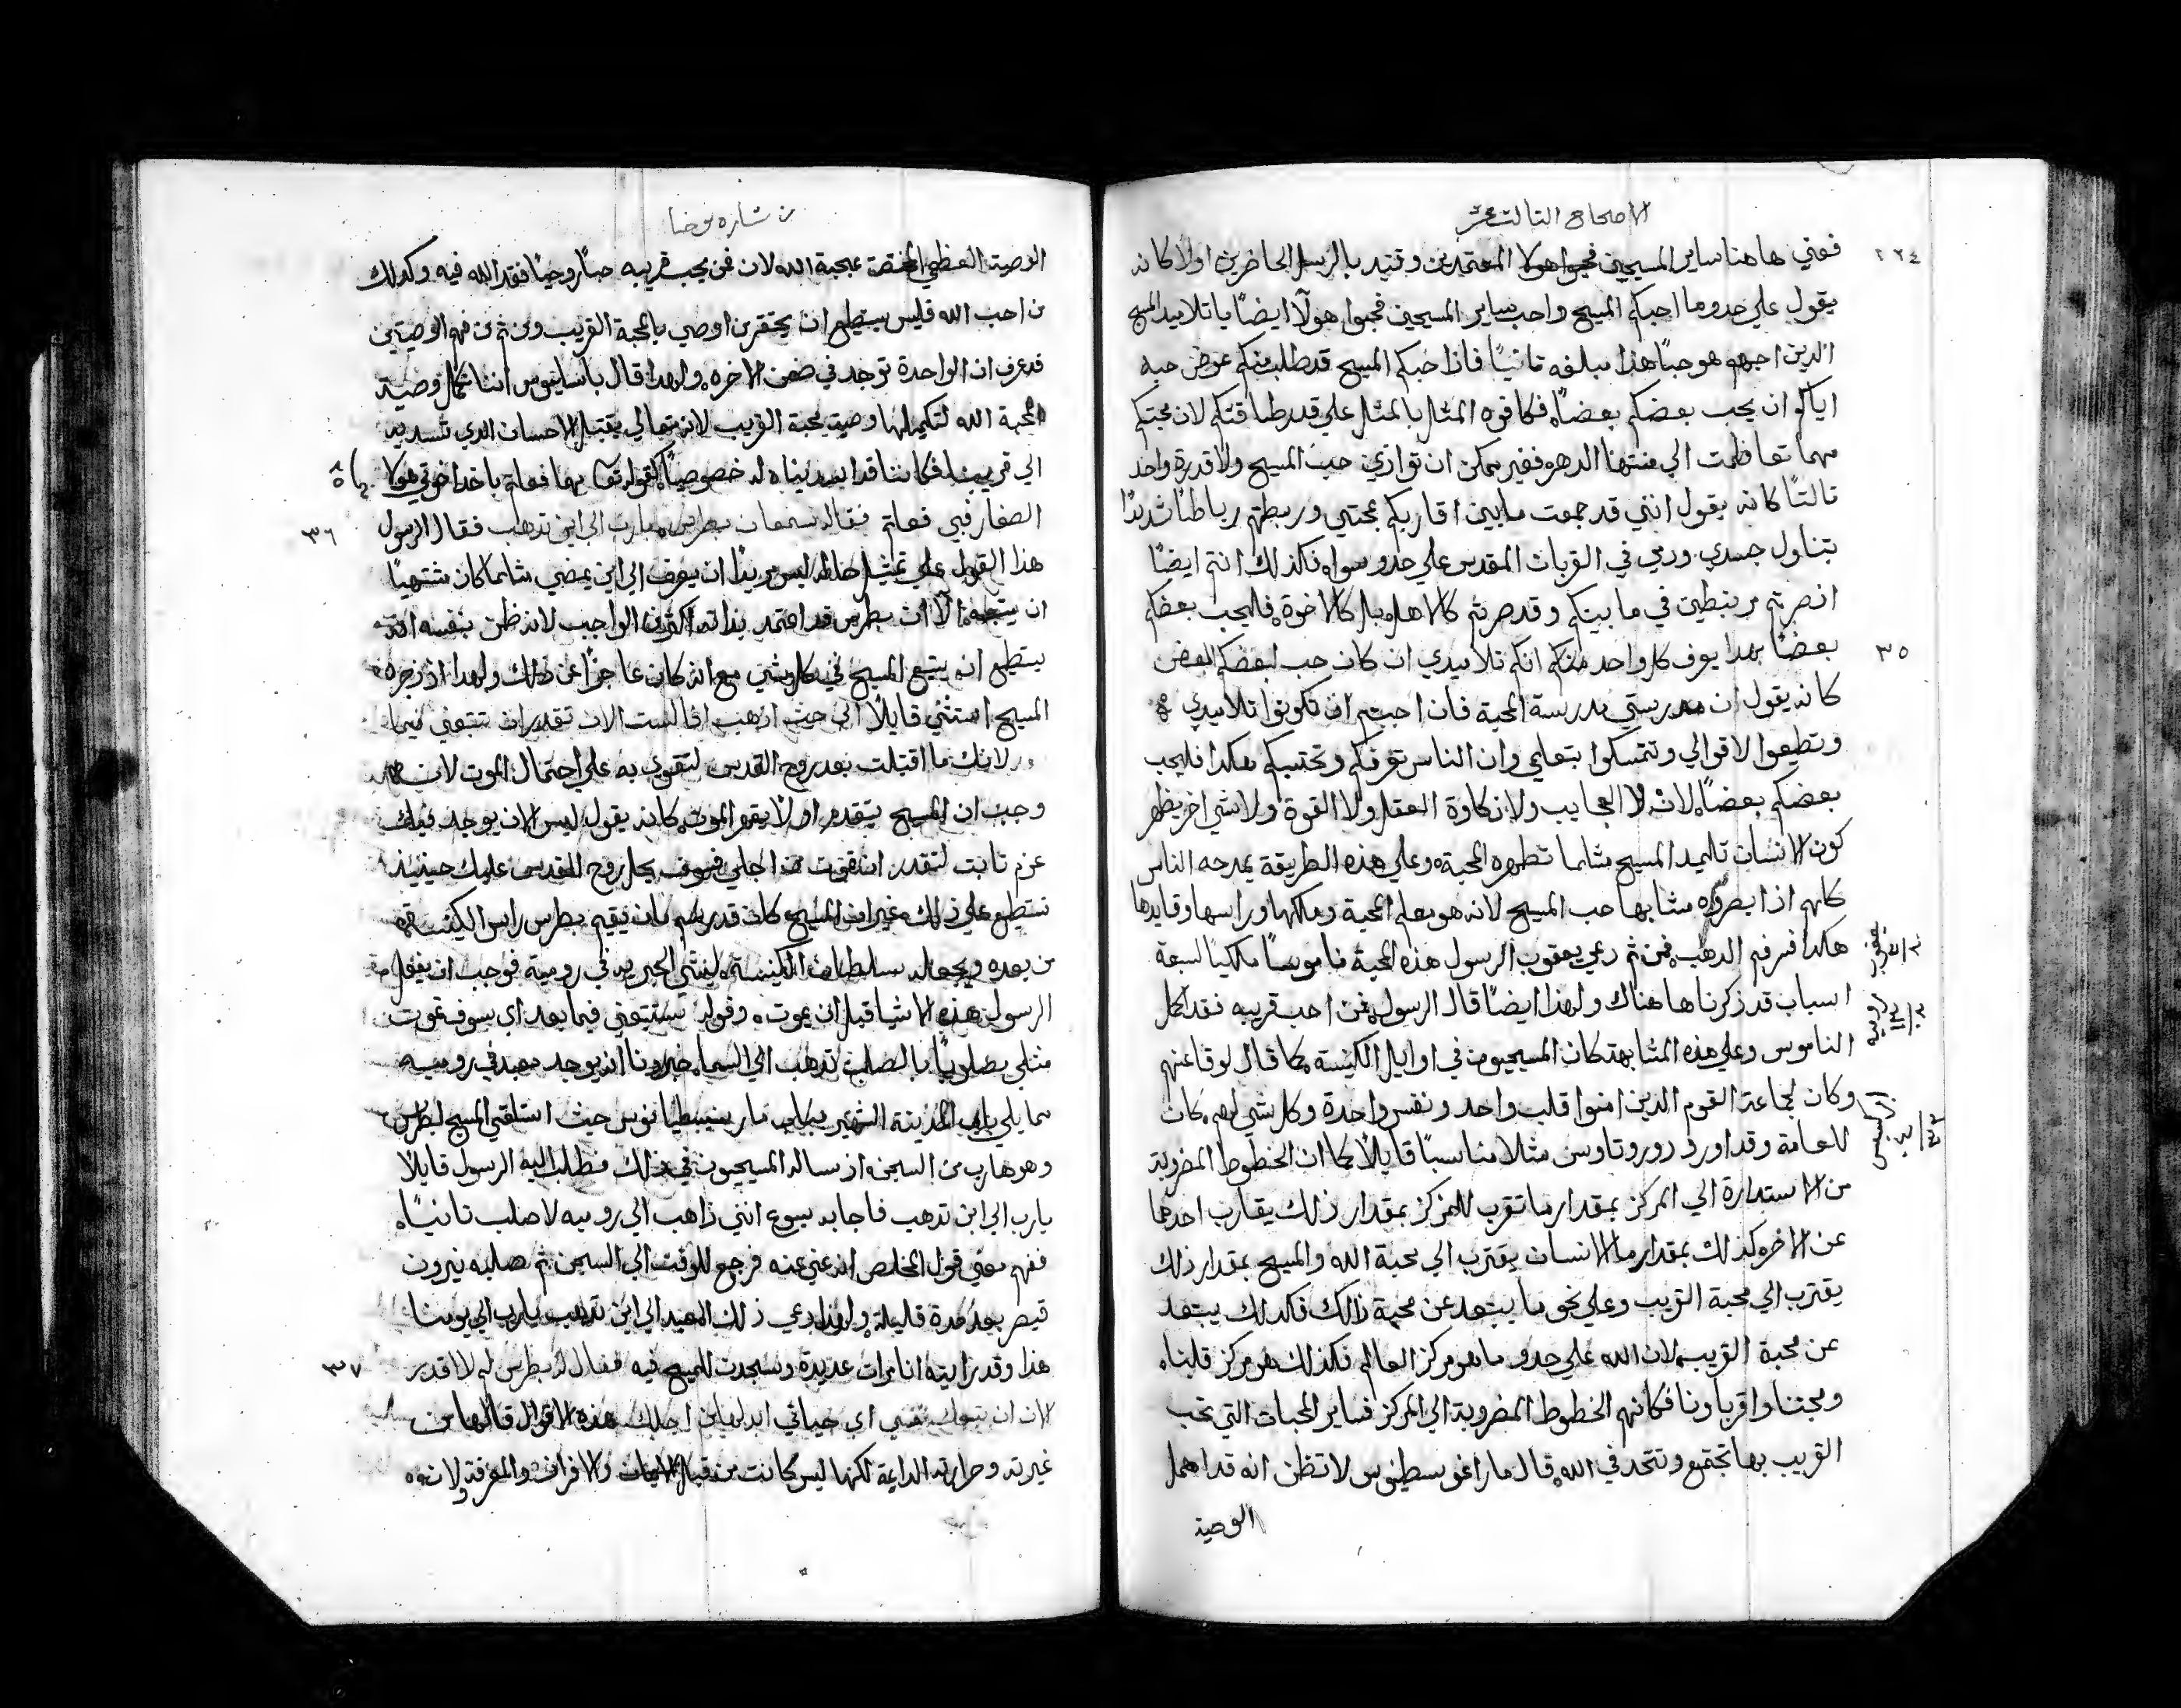 الاصحاح التالت عشر
٢٢٤
فعني هاهنا ساير المسيحيين فحبوا هولا المعتمدين وتبتدي بالرسل الحاضرين اولا كانه
يقول علي حدو ما احبكم المسيح واحب ساير المسيحيين فحبوا هولآ ايضًا ياتلاميد المسيح
الدين احبهم هو حبًا هذا مبلغه تانيًا فاذا حبكم المسيح قد طلب منكم عوض حبه
اياكم ان يحب بعضكم بعضًا فكافوه المثل بالمثل علي قدر طاقتكم لان محبتكم
مهما تعاظمت الي منتها الدهر فغير ممكن ان توازي حب المسيح ولا قدرة واحد
تالتًا كانه يقول انني قد جمعت مابين اقاربكم بمحبتي وربطتهم رباطًا شديدًا
بتناول جسدي ودمي في القربان المقدس علي حدو سواه فكذلك انتم ايضًا
اذ صرتم مرتبطين في مابينكم وقد صرتم كالاهل بل كالاخوة فليحب بعضكم
بعضًا بهدا يعرف كل واحد منكم انكم تلاميدي ان كان حب لبعضكم البعض
٣٥
كانه يقول ان مدرستي مدرسة المحبة فان احببتم ان تكونوا تلاميدي
وتطيعوا لاقوالي وتتمسكوا بتعليمي وان الناس تعرفكم وتحتسبكم هكدا فليحب
بعضكم بعضًا لان لا العجايب ولا ذكاوة العقل ولا القوة ولا شي اخر يظهر
كون الانسان تلميد المسيح مثلما تظهره المحبة وعلي هذه الطريقة يمدحه الناس
كانهم اذا بصروه مشابها حب المسيح لانه هو معلم المحبة ومالكها وراسها وقايدها
هكدا فسر فم الدهب فمن ثم دعي يعقوب الرسول هذه المحبة ناموسًا ملكيًا لسبعة
يعقوب
اسباب قد ذكرناها هناك ولهذا ايضًا قال الرسول من احب قريبه فقد اكمل
روميه
الناموس وعلي هذه المشابهة كان المسيحيون في اوايل الكنيسة كما قال لوقا عنهم
وكان لجماعة القوم الدين امنوا قلب واحد ونفس واحدة وكل شي لهم كان
الابركسيس
للعامة وقد اورد دوروتاوس مثلا مناسبًا قايلًا كما ان الخطوط المضروبة
من الاستدارة الي المركز بمقدار ما تقرب للمركز بمقدار ذلك يقارب احدها
عن الاخر وكذلك بمقدار ما الانسان يقترب الي محبة الله والمسيح بمقدار ذلك
يقترب الي محبة القريب وعلي نحو ما يبتعد عن محبة ذلك فكدلك يبتعد
عن محبة القريب لان الله علي حدو ماهو مركز العالم فكذلك هو مركز قلبنا
ومحبتنا واقرباونا فكانهم الخطوط المضروبة الي المركز فساير المحبات التي تحب
القريب بها تجتمع وتتحد في الله قال مار اغوسطينوس لاتظن انه قد اهمل
الوصية
من بشاره يوحنا
الوصية العظمي المختصة بمحبة الله لان من يحب قريبه حبًا روحيًا فقد الله فيه وكدلك
من احب الله فليس يستطيع ان يحتقر من اوصي بالمحبة القريب ومن ثم من فهم الوصيتين
قد عرف ان الواحدة توجد في ضمن الاخره ولهدا قال باسيليوس اننا نكمل وصية
المحبة الله لتكميلها وصية محبة القريب لانه تعالي يقتبل الاحسان الدي نسديه
الي قريبنا فكاننا قد اسديناه له خصوصيًا كقوله مهما فعلتم باحد اخوتي هولا
الصغار فبي فعلتم فقال سمعان بطرس يارب الي اين تدهب فقال الرسول
٣٦
هذا القول علي تمثيل ليس مريدًا ان يعرف الي اين يمضي مثلما كان مشتهيًا
ان يتبعه الا ان بطرس قد اعتمد بذاته اكثر من الواجب لانه ظن بنفسه انه
يستطيع ان يتبع المسيح في كل شي مع انه كان عاجزًا عن ذلك ولهدا اذ زجره
المسيح استثني قايلًا الي حيث ادهب انا لست الان تقدر ان تتبعني فيما
لانك ما اقتبلت بعد روح القدس لتقوي به علي احتمال الموت لان
وجب ان المسيح يتقدم اولًا يقهر الموت كانه يقول ليس الان يوجد فيك
عزم تابت لتقدر ان تموت من اجلي فسوف يحل روح القدس عليك حينيذ
تستطيع علي ذلك غير ان المسيح كان قد رسم بان يقيم بطرس راس الكنيسة
من بعده ويجعل له سلطان الكنيسة لينشي الحبرية في رومية فوجب ان يفعل
الرسول هذه الاشيا قبل ان يموت وقوله ستتبعني فيما بعد اي سوف تموت
مثلي مصلوبًا بالصليب تدهب الي السما خبرونا انه يوجد معبد في روميه
مما يلي باب المدينة الشهير بباب مار سبسطيانوس حيث استلقي المسيح لبطرس
وهو هارب من السجن اذ ساله المسيحيون في ذلك فطلب اليه الرسول قايلًا
يارب الي اين تدهب فاجابه يسوع انني ذاهب الي روميه لاصلب تانيًا
ففهم معني قول المخلص انه عني عنه فرجع للوقت الي السجن ثم صلبه نيرون
قيصر بعد مدة قليلة ولهدا دعي ذلك المعبد الي اين تدهب يارب الي يومنا
هذا وقد رايته انا مرات عديدة وسجدت للمسيح فيه فقال له بطرس لم لا اقدر
٣٧
الان ان نفسي اي حياتي ابدلها من اجلك هذه الاقوال قالها من
غيرته وحرارته الداعية لكنها ليس كانت من قبل والمعرفة لان